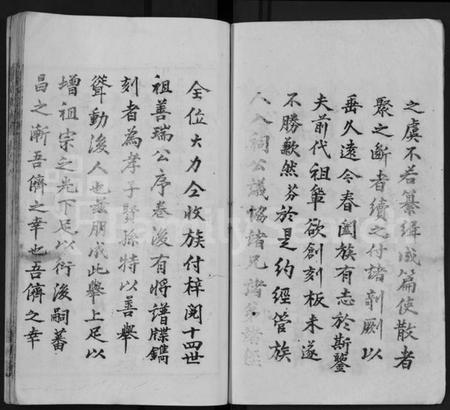 之虞不若纂緝成篇使散者
聚之断者續之付諸剞劂以
垂久遠今春闔族有志於斯鑒
夫前代祖輩欲創刻板未遂
不勝歉然芬於是約經管族
人入祠公議協諸兄諸
全位大力仝收族付梓閱十四世
祖善瑞公序卷後有將譜牒鐫
刻者為孝子賢孫特以善舉
聳動後人也兹朋成此舉上足以
增祖宗之光下足以衍後嗣蕃
昌之漸吾儕之幸也吾儕之幸